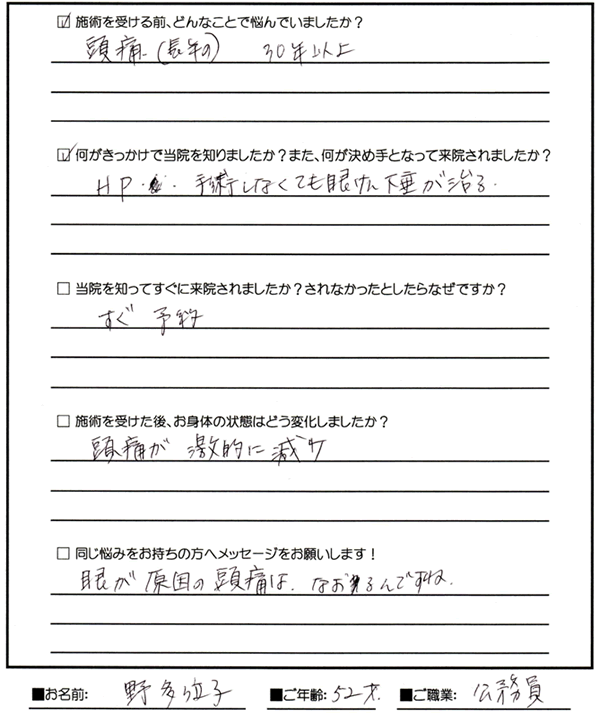 ☑ 施術を受ける前、どんなことで悩んでいましたか？
頭痛（長年の） 30年以上
☑ 何がきっかけで当院を知りましたか？また、何が決め手となって来院されましたか？
HP. 手術しなくても眼けん下垂が治る.
□ 当院を知ってすぐに来院されましたか？されなかったとしたらなぜですか？
すぐ 予約
□ 施術を受けた後、お身体の状態はどう変化しましたか？
頭痛が 激的に減少
□ 同じ悩みをお持ちの方へメッセージをお願いします！
眼が原因の頭痛は、なおるんですね.
■お名前: 野 子 ■ご年齢: 52才. ■ご職業: 公務員